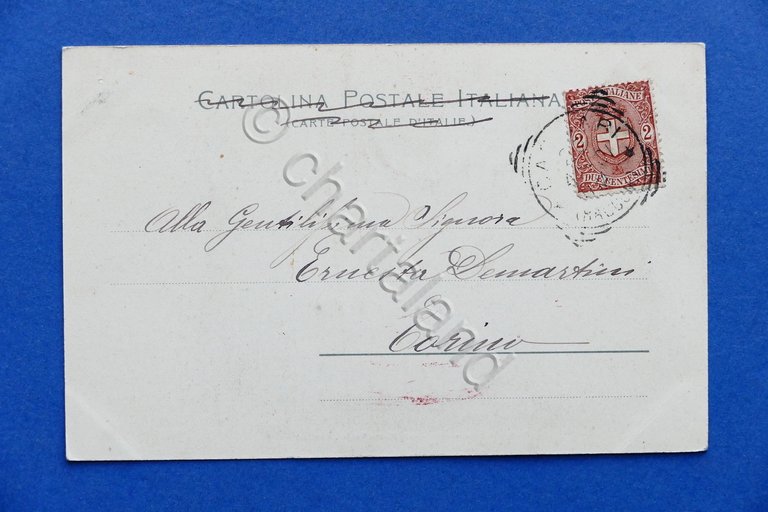 CARTOLINA POSTALE ITALIANA
(CARTE POSTALE D'ITALIE.)
ITALIANE
2 2
DUE CENTESIMI
Alla Gentilissima Signora
Ernesta Demartini
Torino
© chartaland